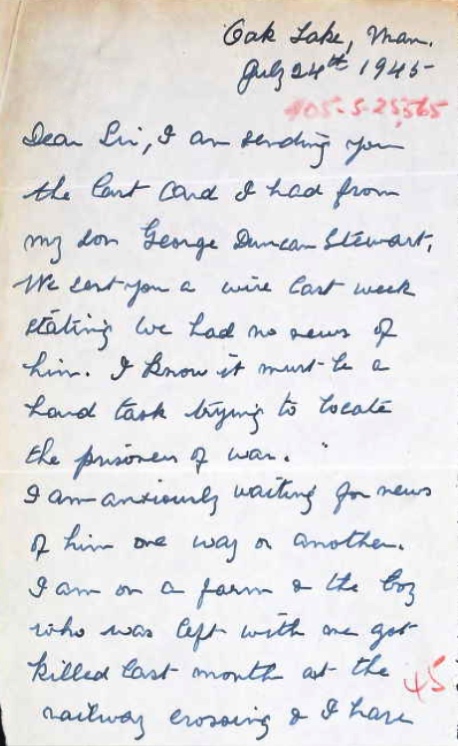 Oak Lake, Man.
July 24th 1945
405-S-25,565
Dear Sir, I am sending you
the last card I had from
my son George Duncan Stewart.
We sent you a wire last week
stating we had no news of
him. I know it must be a
hard task trying to locate
the prisoners of war.
I am anxiously waiting for news
of him one way or another.
I am on a farm & the boy
who was left with me got
killed last month at the
45
railway crossing & I have